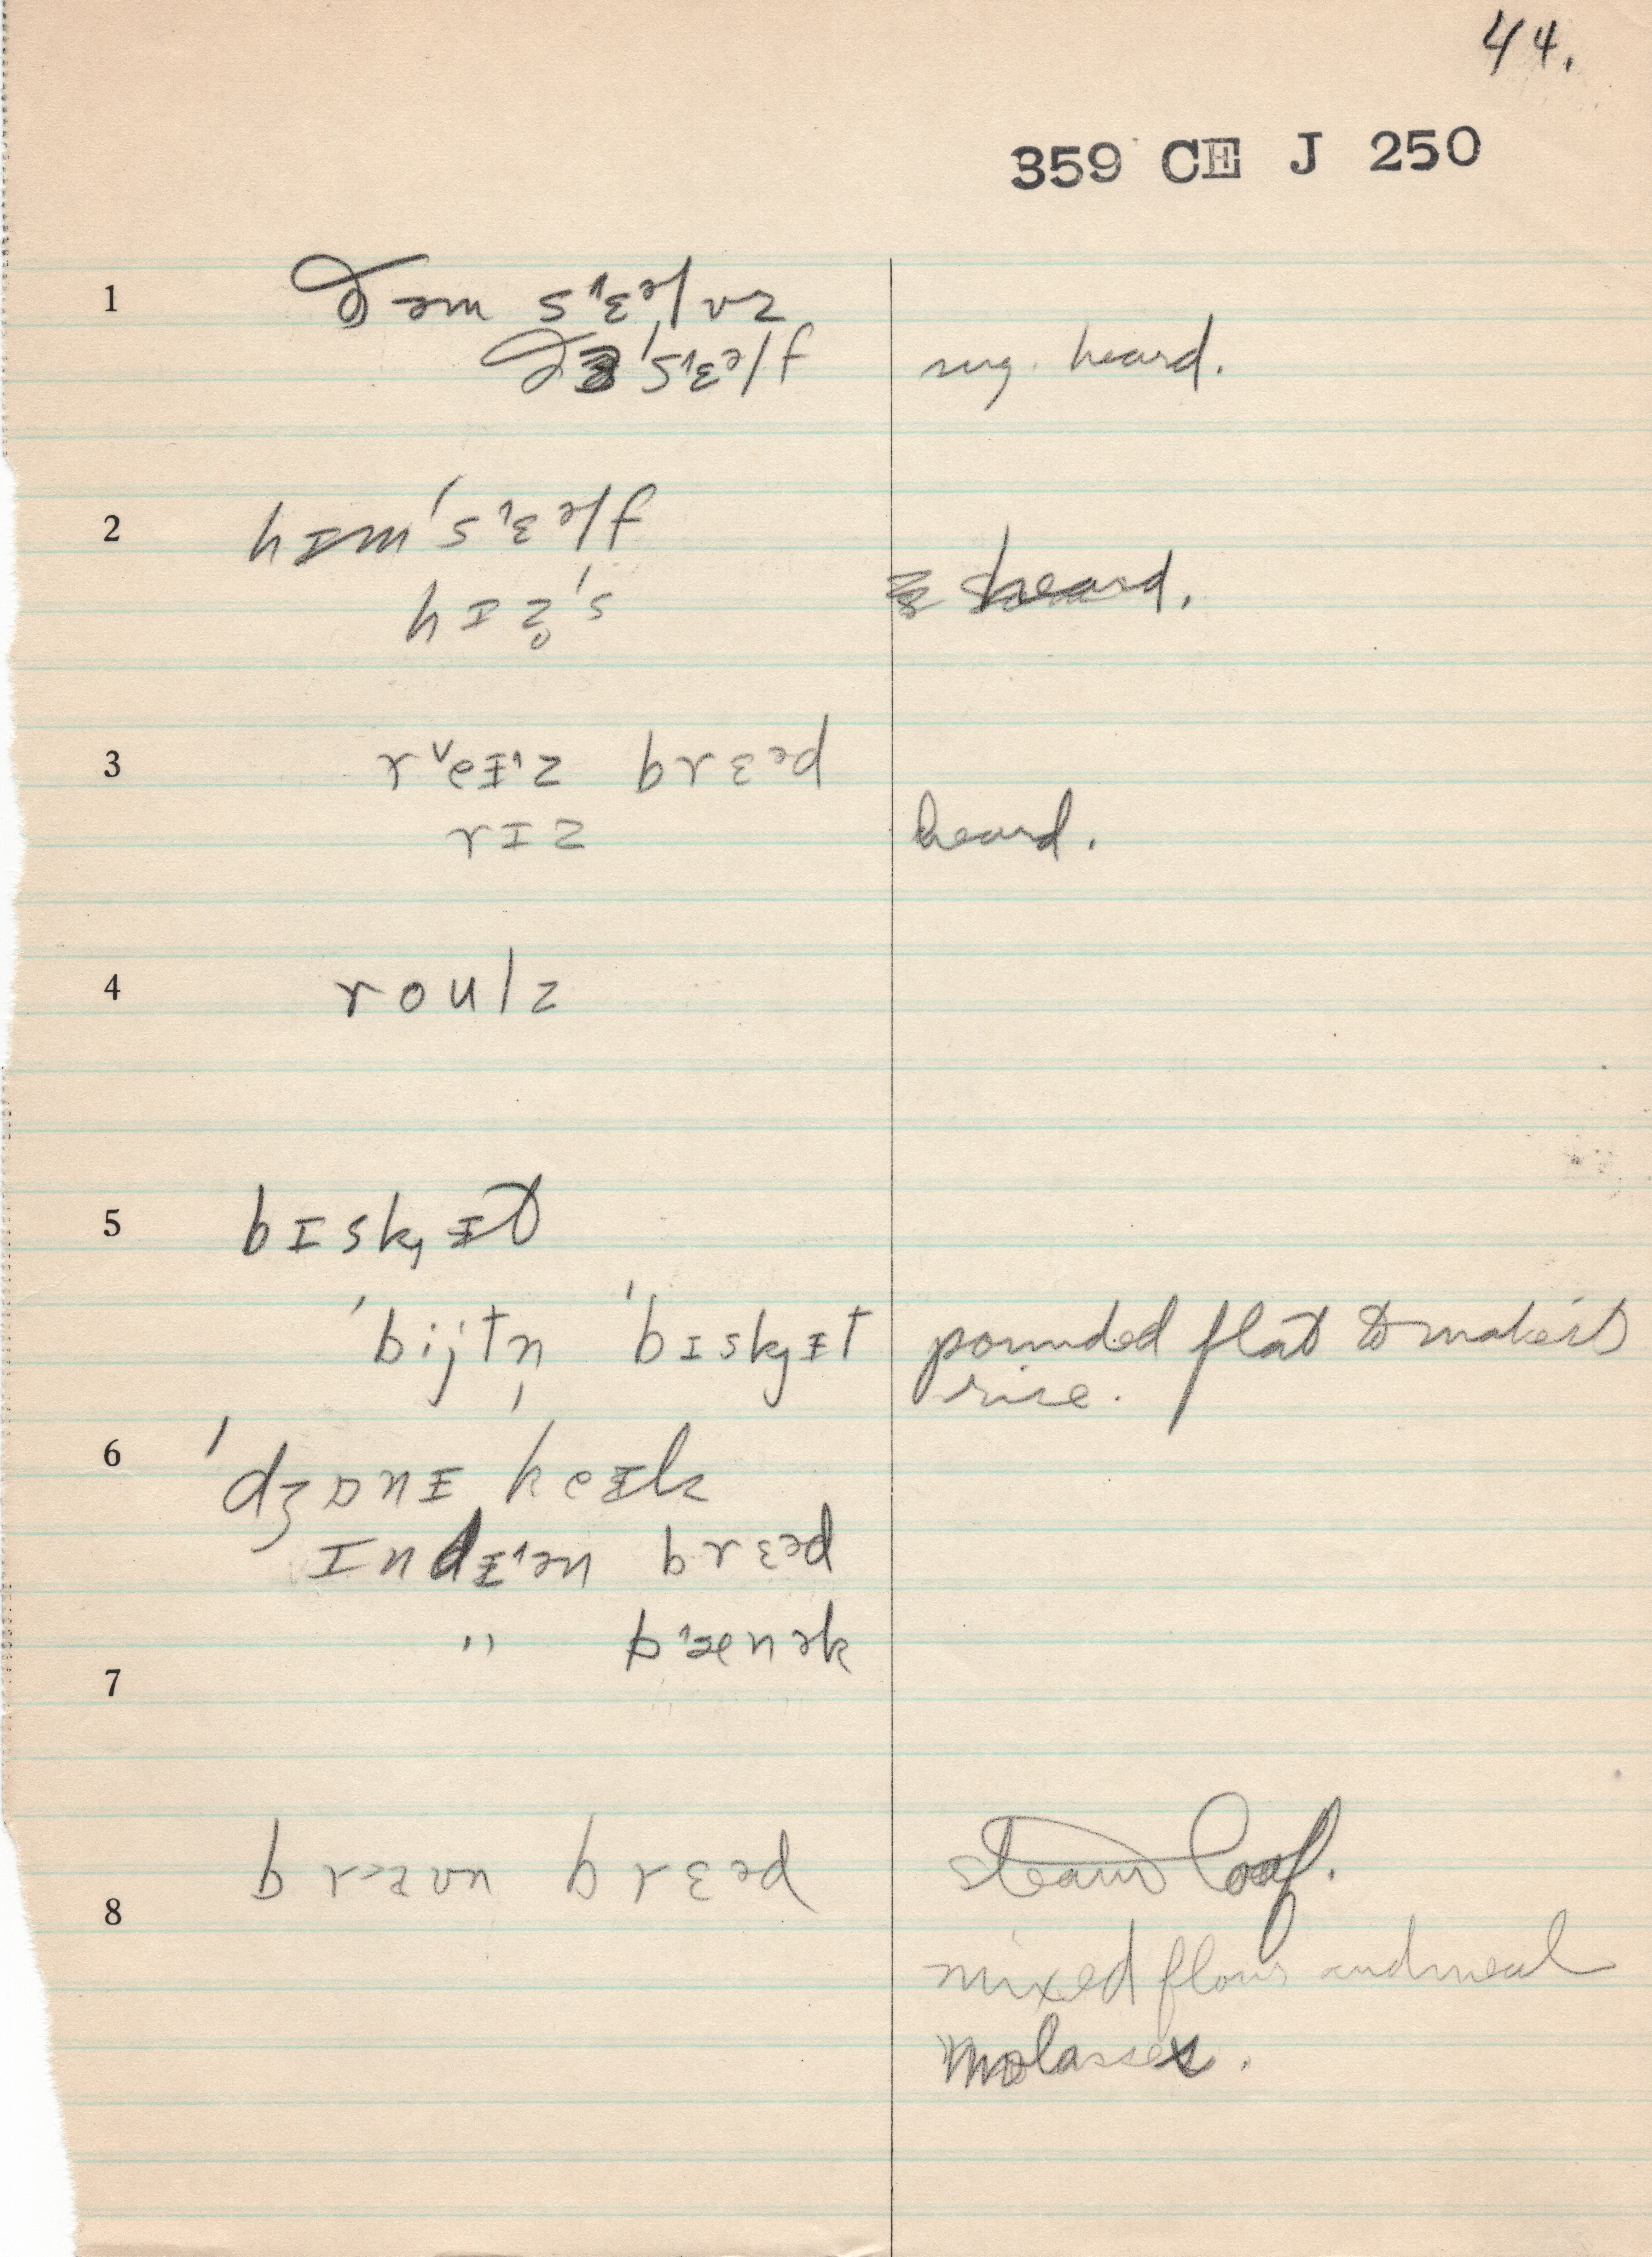 44.
359 CE J 250
1 ðəm sɛ˄əlvz
ðɛ 'sɛ˄əlf sug. heard.
2 hɪm'sɛ˄əlf
hɪz̥'s heard.
3 r˅eɪ̵˄z brɛəd
rɪz heard.
4 roulz
5 bɪsk̡ɪ̵t
'bijtn̩ 'bɪsk̡ɪ̵t pounded flat to make it
rise.
6 'dʒɒnɪ̵ keɪ̵k
ɪndɪ̵˄ən brɛəd
" bæ˄nək
7
bra˃ʊn brɛəd steam loaf.
8
mixed flour and meal
molasses.